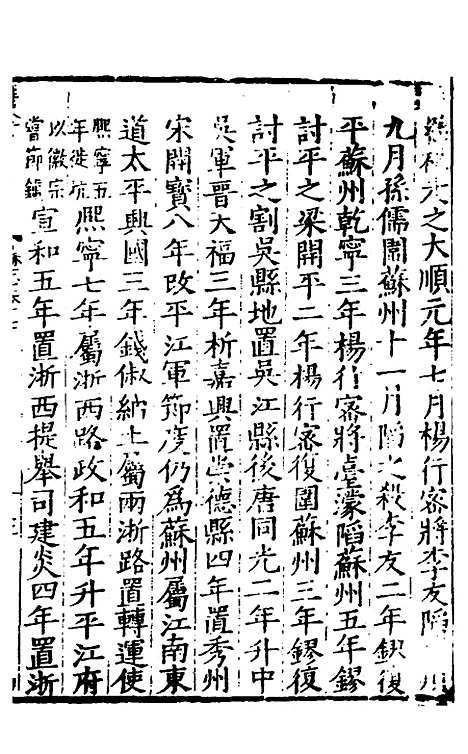 之大順元年七月楊行密將李友陷州
九月孫儒圍蘇州十二月陷之殺李友二年鏐復
平蘇州乾寧三年楊行密將臺濛陷蘇州五年鏐
討平之梁開平二年楊行密復圍蘇州三年鏐復
討平之割吳縣地置吳江縣後唐同光二年升中
吳軍晋天福三年析嘉興置崇德縣四年置秀州
宋開寳八年改平江軍節度仍爲蘇州屬江南東
道太平興國三年錢俶納土屬兩浙路置轉運使
熙寧五年徙杭熙寧七年屬浙西路政和五年升平江府
以徽宗嘗節鎮宣和五年置浙西提舉司建炎四年置浙